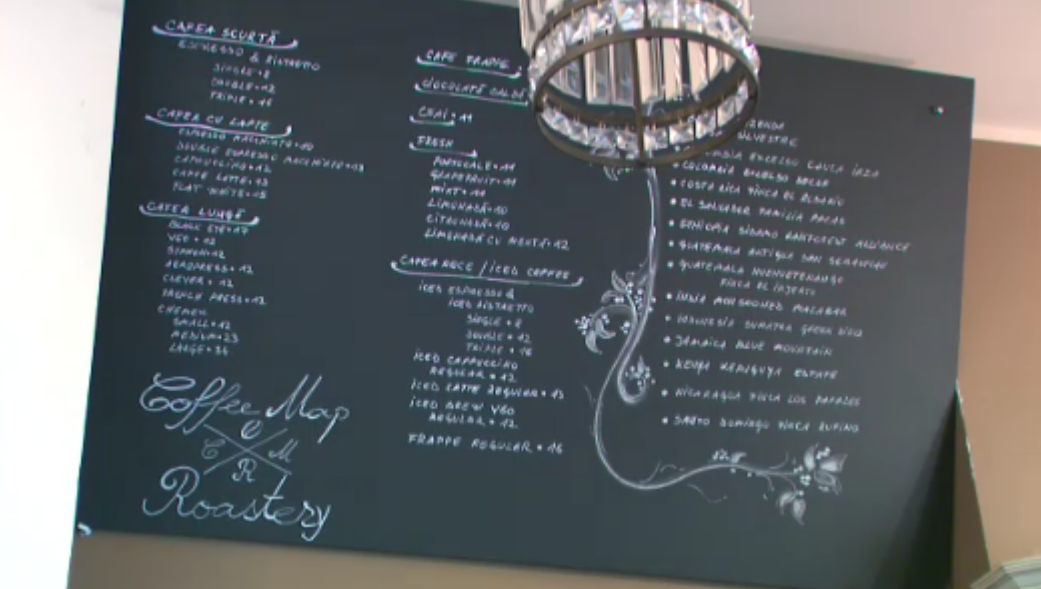 CAFEA SCURTĂ
ESPRESSO & RISTRETTO
SINGLE • 8
DOUBLE • 12
TRIPLE • 16
CAFEA CU LAPTE
ESPRESSO MACCHIATO • 10
DOUBLE ESPRESSO MACCHIATO • 13
CAPPUCCINO • 12
CAFFE LATTE • 13
FLAT WHITE • 15
CAFEA LUNGĂ
BLACK EYE • 17
V60 • 12
SIPHON • 12
AEROPRESS • 12
CLEVER • 12
FRENCH PRESS • 12
CHEMEX
SMALL • 12
MEDIUM • 23
LARGE • 34
Coffee Map
C M
R
Roastery
CAFE FRAPPE
CIOCOLATĂ CALDĂ
CEAI • 11
FRESH
PORTOCALE • 11
GRAPEFRUIT • 11
MIXT • 11
LIMONADĂ • 10
CITRONADĂ • 10
LIMONADĂ CU MENTĂ • 12
CAFEA RECE / ICED COFFEE
ICED ESPRESSO &
ICED RISTRETTO
SINGLE • 8
DOUBLE • 12
TRIPLE • 16
ICED CAPPUCCINO
REGULAR • 12
ICED LATTE REGULAR • 13
ICED BREW V60
REGULAR • 12
FRAPPE REGULAR • 16
• COLOMBIA EXCELSO
• COSTA RICA FINCA EL ROSARIO
• EL SALVADOR FAMILIA PACAS
• ETHIOPIA SIDAMO RAINFOREST ALLIANCE
• GUATEMALA ANTIGUA SAN SEBASTIAN
• GUATEMALA HUEHUETENANGO
FINCA EL INJERTO
• INDIA MONSOONED MALABAR
• INDONESIA SUMATRA
• JAMAICA BLUE MOUNTAIN
• KENYA ESTATE
• NICARAGUA FINCA LOS PAPALES
• SANTO DOMINGO FINCA RUFINO